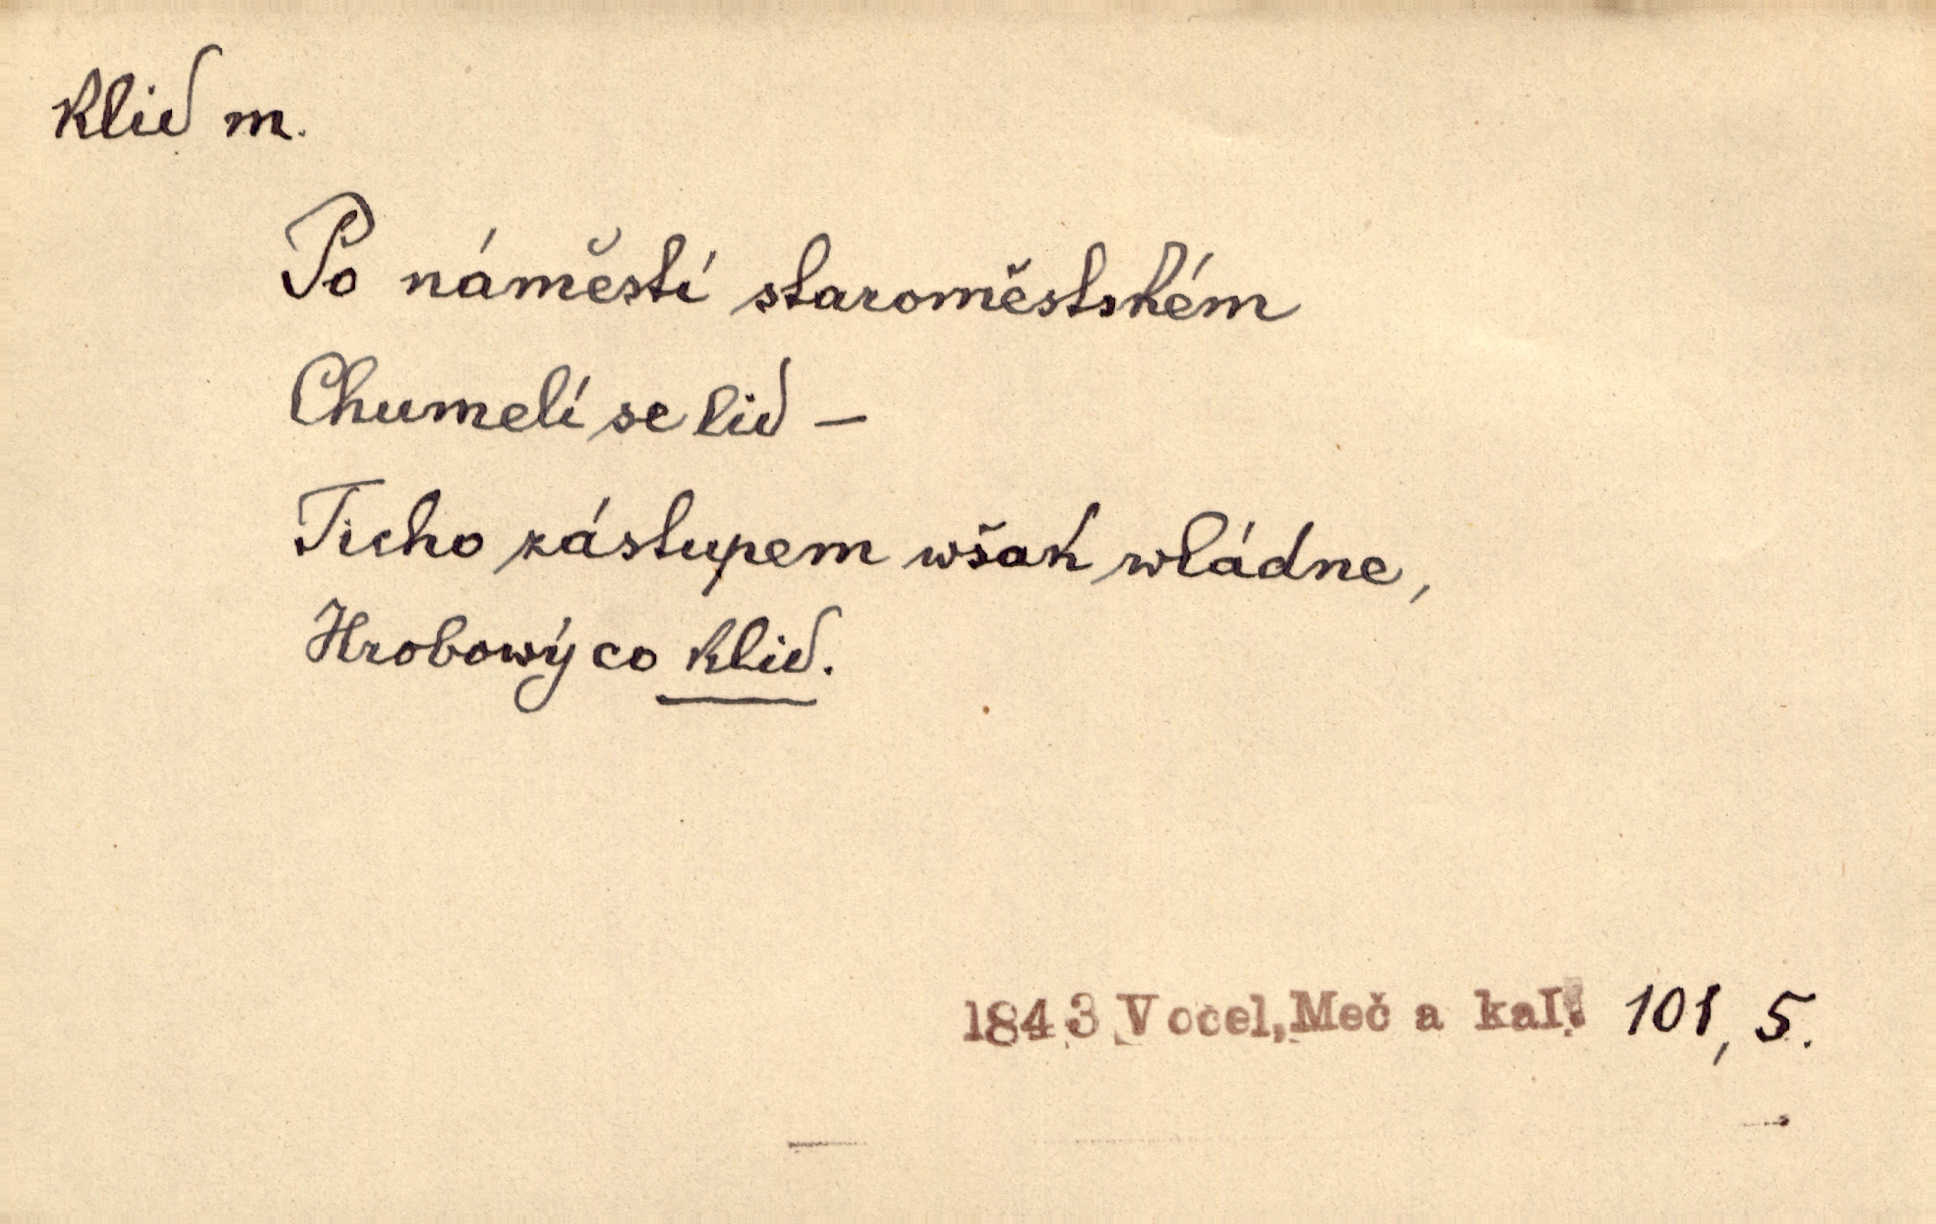 klid m.
Po náměstí staroměstském
Chumelí se lid –
Ticho zástupem wšak wládne,
Hrobowý co klid.
1843 Vocel, Meč a kal. 101, 5.